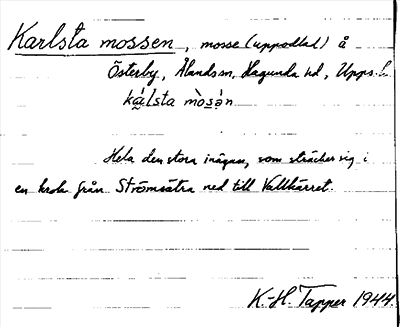 Karlsta mossen, mosse (uppodlad) å
Österby, Ålandssn, Hagunda hd, Upps. l.
ká̰lsta mòsa̍n
Hela den stora inägan, som sträcker sig i
en krok från Strömsätra ned till Vallkärret.
K.-H. Tapper 1944.